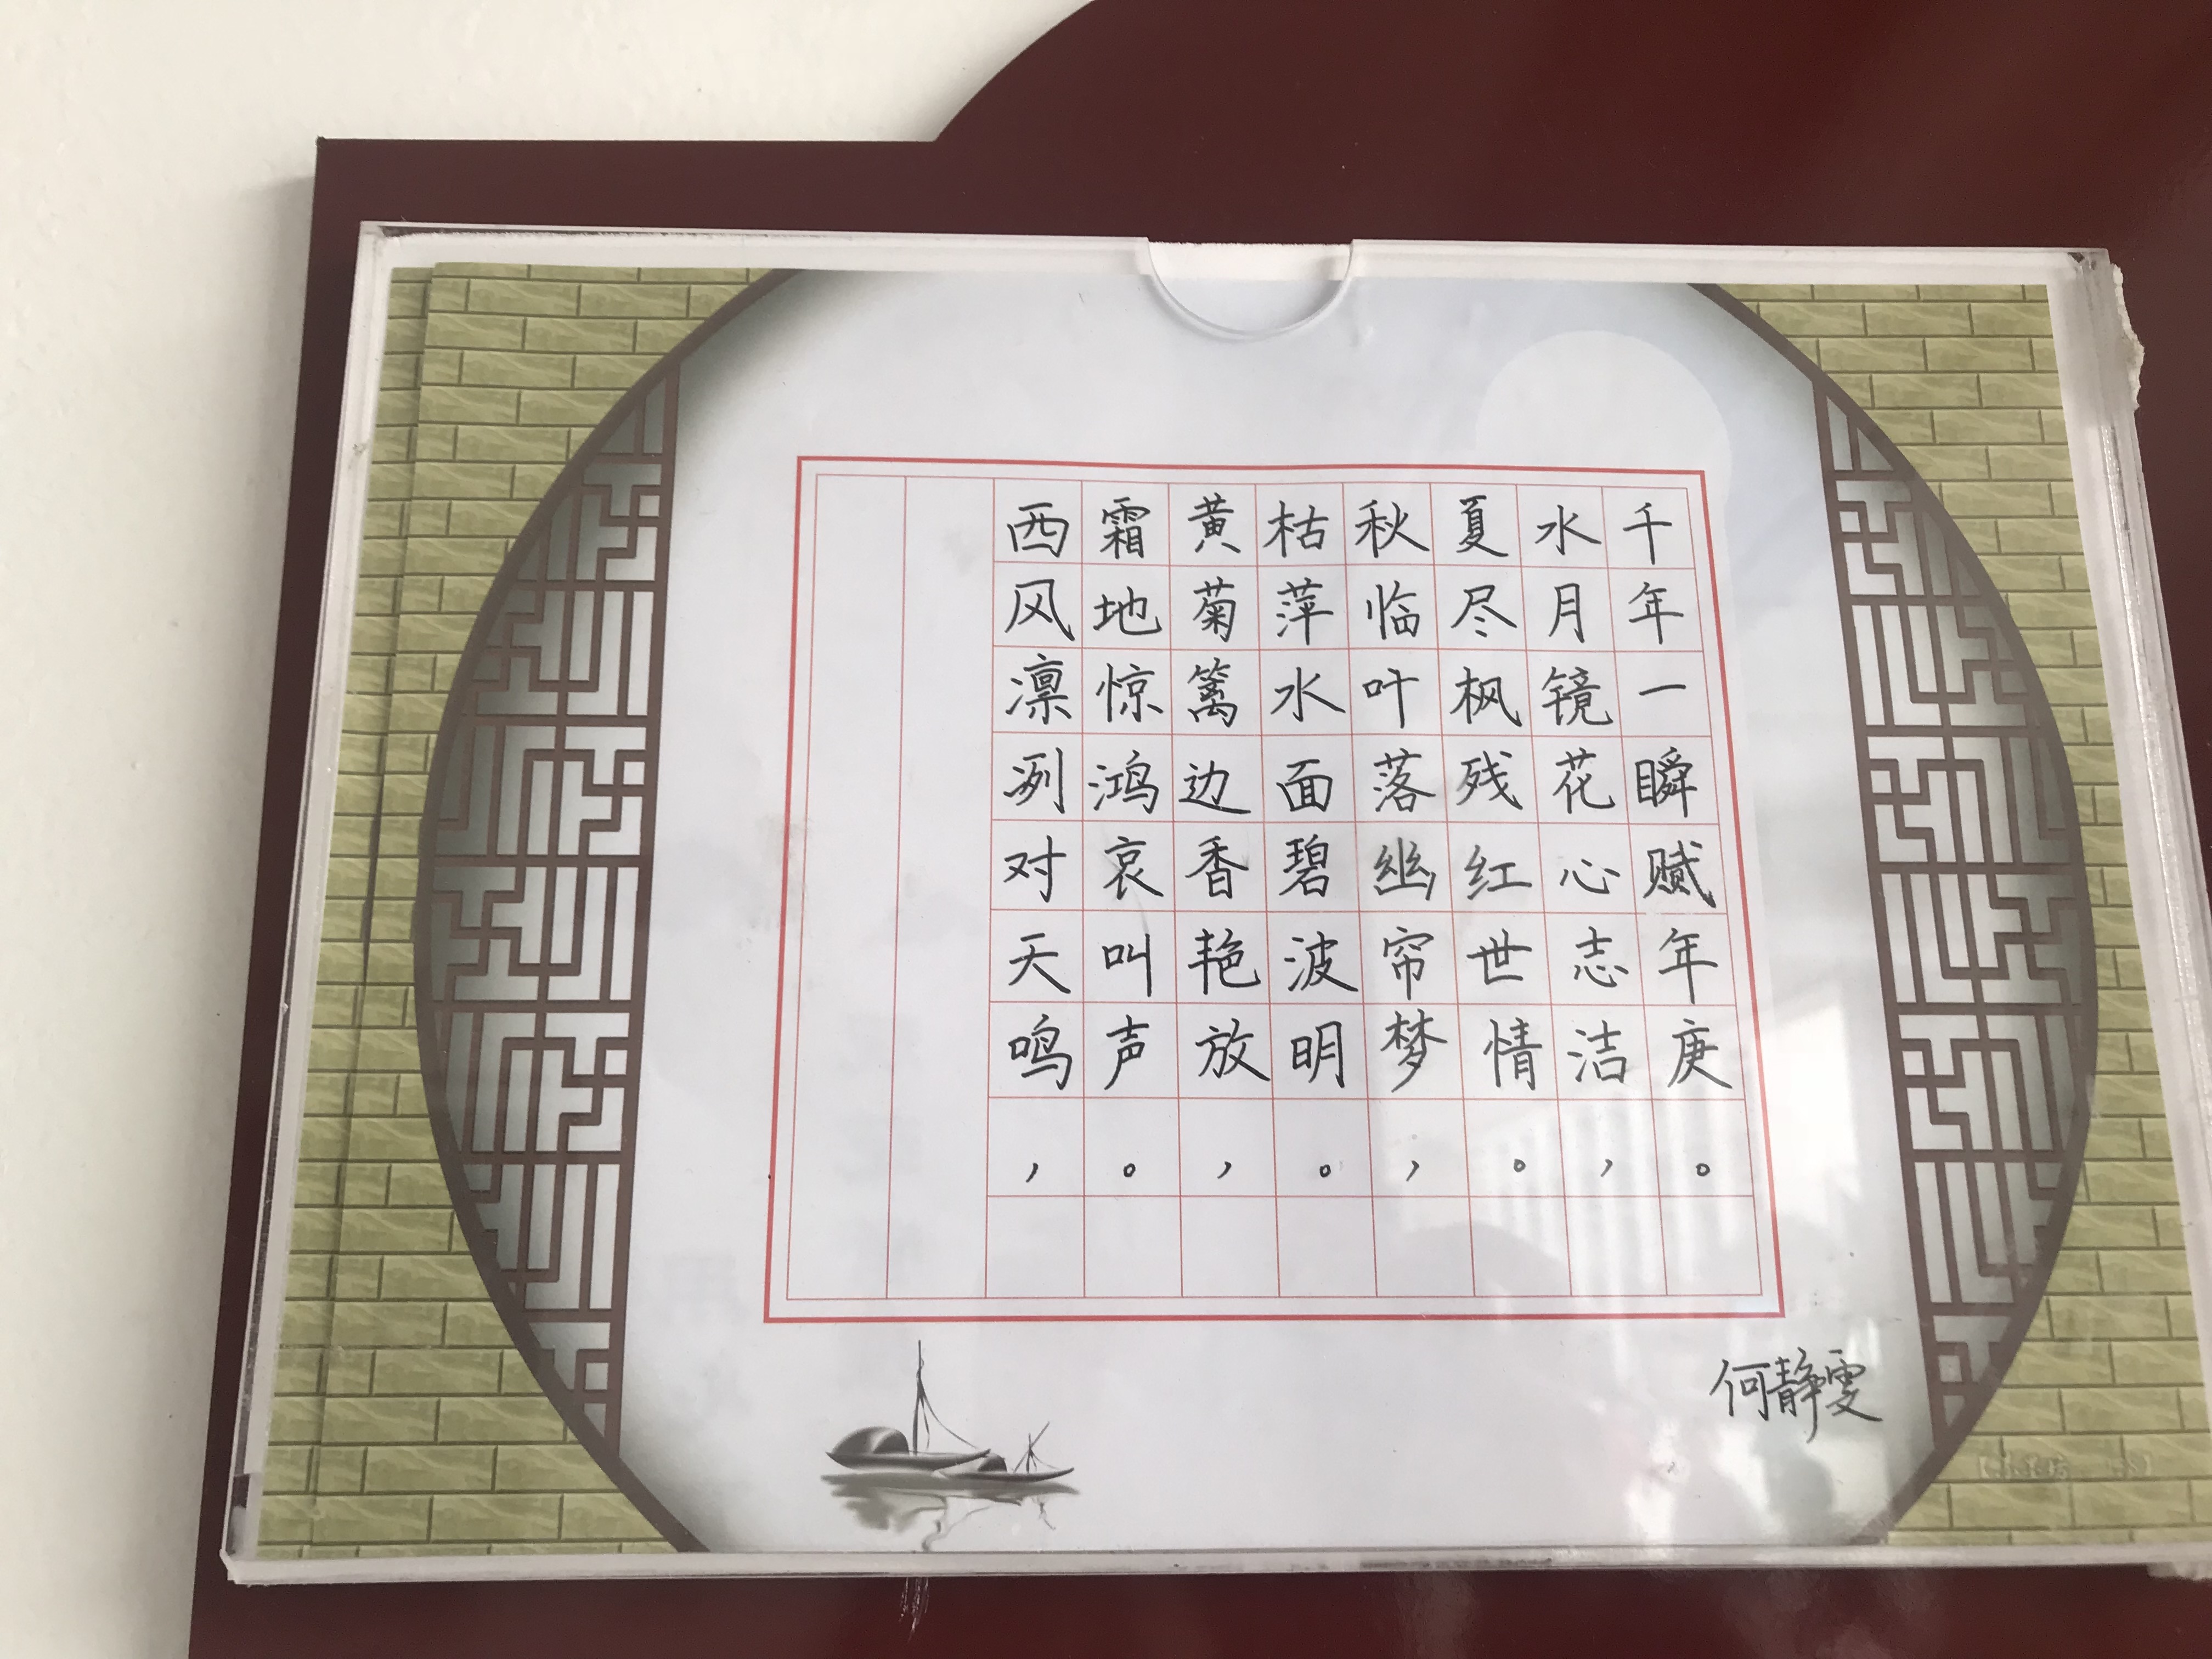 西风凛冽对天鸣，
霜地惊鸿哀叫声。
黄菊篱边香艳放，
枯萍水面碧波明。
秋临叶落幽帘梦，
夏尽枫残红世情。
水月镜花心志洁，
千年一瞬赋年庚。
何静雯